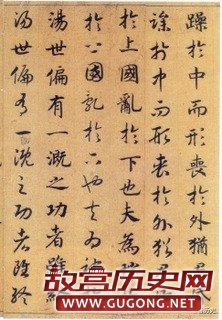 躁於中而形喪於外猶君
躁於中而形喪於外猶君
於上國亂於下也夫為稼
於上國亂於下也夫為稼
湯世偏有一溉之功者雖終
湯世偏有一溉之功者雖終
故宫历史网
WWW.GUGONG.NET